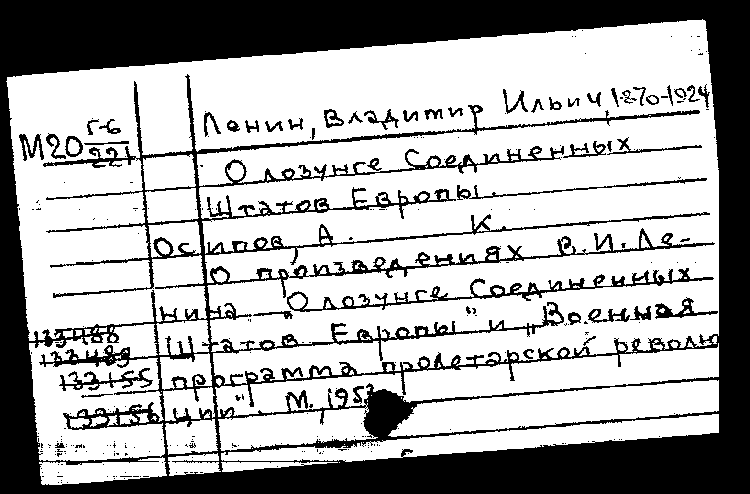 М20 Г-6
221
Ленин, Владимир Ильич, 1870-1924
О лозунге Соединенных
Штатов Европы.
Осипов, А. К.
О произведениях В.И.Ле-
нина „О лозунге Соединенных
Штатов Европы" и „Военная
программа пролетарской револю
ции". М.,
133488
133489
133155
133156